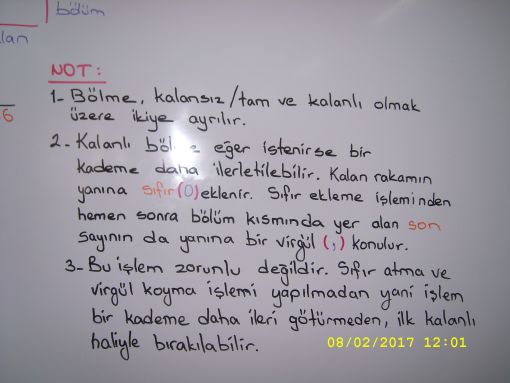 bölüm
lan
6
NOT:
1- Bölme, kalansız/tam ve kalanlı olmak
üzere ikiye ayrılır.
2- Kalanlı eğer istenirse bir
kademe daha ilerletilebilir. Kalan rakamın
yanına sıfır(0)eklenir. Sıfır ekleme işleminden
hemen sonra bölüm kısmında yer alan son
sayının da yanına bir virgül (,) konulur.
3- Bu işlem zorunlu değildir. Sıfır atma ve
virgül koyma işlemi yapılmadan yani işlem
bir kademe daha ileri götürmeden, ilk kalanlı
haliyle bırakılabilir.
08/02/2017 12:01